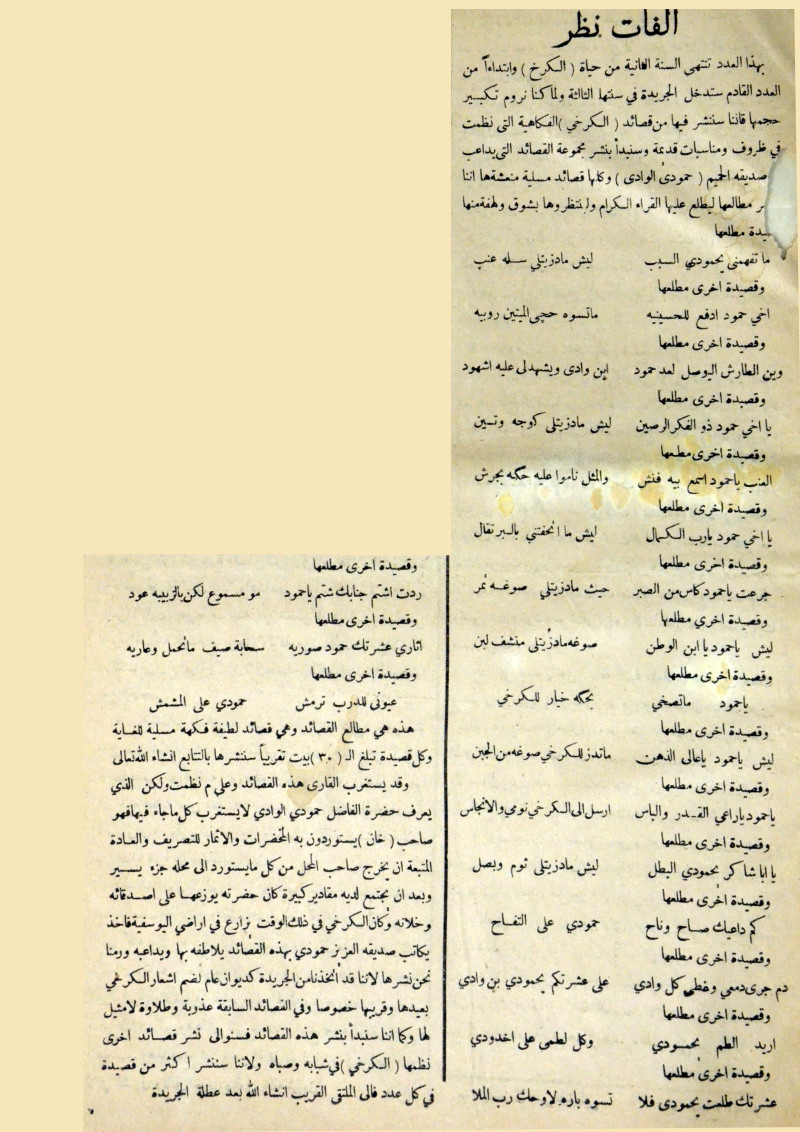 الفات نظر
بهذا العدد تنتهي السنة الثانية من حياة ( الكرخ ) وابتداءاً من
العدد القادم ستدخل الجريدة في سنتها الثالثة ولما كنا نروم تكبير
حجمها فاننا سننشر فيها من قصائد ( الكرخي ) الفكاهية التي نظمت
في ظروف ومناسبات قديمة وسنبدأ بنشر مجموعة القصائد التي يداعب
صديقه الحميم ( حمودي الوادي ) وكلها قصائد مسلية منعشة ها اننا
مطالعها ليطلع عليها القراء الكرام ولينتظروها بشوق ولهفة منها
مطلعها
ما تفهمني يحمودي السبب ليش مادزيتلي سله عنب
وقصيدة اخرى مطلعها
اخي حمود ادفع للحسينيه ماتسوه حجي الميتين روبيه
وقصيدة اخرى مطلعها
وين الطارش اليوصل لعد حمود ابن وادي ويشهدلي عليه اشهود
وقصيدة اخرى مطلعها
يا اخي حمود ذو الفكر الرصين ليش مادزيتلي كوجه وتسين
وقصيدة اخرى مطلعها
العنب ياحمود اسمع بيه فنش والمثل ناموا عليه حگه بجرش
وقصيدة اخرى مطلعها
يا اخي حمود يارب الكمال ليش ما اتحفتني بالبرتقال
وقصيدة اخرى مطلعها
جرعت ياحمود كاس من الصبر حيث مادزيتلي صوغه تمر
وقصيدة اخري مطلعها
ليش ياحمود يا ابن الوطن صوغه مادزيتلي منشف لبن
وقصيدة اخرى مطلعها
ياحمود ماتصخي بحگه خيار للكرخي
وقصيدة اخرى مطلعها
ليش ياحمود ياعالي الذهن ماتدز للكرخي صوغه من الجبن
وقصيدة اخرى مطلعها
ياحمود ياراعي القدر والباس ارسل الى الكرخي نومي والانجاس
وقصيدة اخرى مطلعها
يا ابا شاكر يحمودي البطل ليش مادزيتلي ثوم وبصل
وقصيدة اخرى مطلعها
كم داعيك صاح وناح حمودي على التفاح
وقصيدة اخرى مطلعها
دم جرى دمعي وغطى كل وادي على عشرتكم يحمودي بن وادي
وقصيدة اخرى مطلعها
اريد الطم يحمودي وكل لطمي على اخدودي
وقصيدة اخرى مطلعها
عشرتك طلعت يحمودي فلا تسوه باره لاوحك رب الملا
وقصيدة اخرى مطلعها
ردت اشتم جنابك شتم ياحمود مو مسموع لكن بالزبيبه عود
وقصيدة اخرى مطلعها
اثاري عشرتك حمود صوريه سحابة صيف ماتحمل وعاريه
وقصيدة اخرى مطلعها
عيوني للدرب ترمش حمودي على المشمش
هذه هي مطالع القصائد وهي قصائد لطيفة فكهة مسلية للغاية
وكل قصيدة تبلغ الـ ( ٣٠ ) بيت تقريباً سننشرها بالتتابع انشاء الله تعالى
وقد يستغرب القارى هذه القصائد وعلى م نظمت ولكن الذي
يعرف حضرة الفاضل حمودي الوادي لا يستغرب كل ماجاء فيها فهو
صاحب ( خان ) يستوردون به المخضرات والاثمار للتصريف والعادة
المتبعة ان يخرج صاحب المحل من كل مايستورد الى محله جزء يسير
وبعد ان يجتمع لديه مقادير كبيرة كان حضرته يوزعها على اصدقائه
وخلانه وكان الكرخي في ذلك الوقت يزارع في اراضي اليوسفية فاخذ
يكاتب صديقه العزيز حمودي بهذه القصائد يلاطفه بها ويداعبه ورمنا
نحن نشرها لاننا قد اتخذنا من الجريدة كديوان عام لضم اشعار الكرخي
بعيدها وقريبها خصوصا وفي القصائد السابقة عذوبة وطلاوة لامثيل
لها وكما اننا سنبدأ بنشر هذه القصائد فسنوالى نشر قصائد اخرى
نظمها ( الكرخي ) في شبابه وصباه ولاننا سننشر اكثر من قصيدة
في كل عدد فالى الملتقى القريب انشاء الله بعد عطلة الجريدة